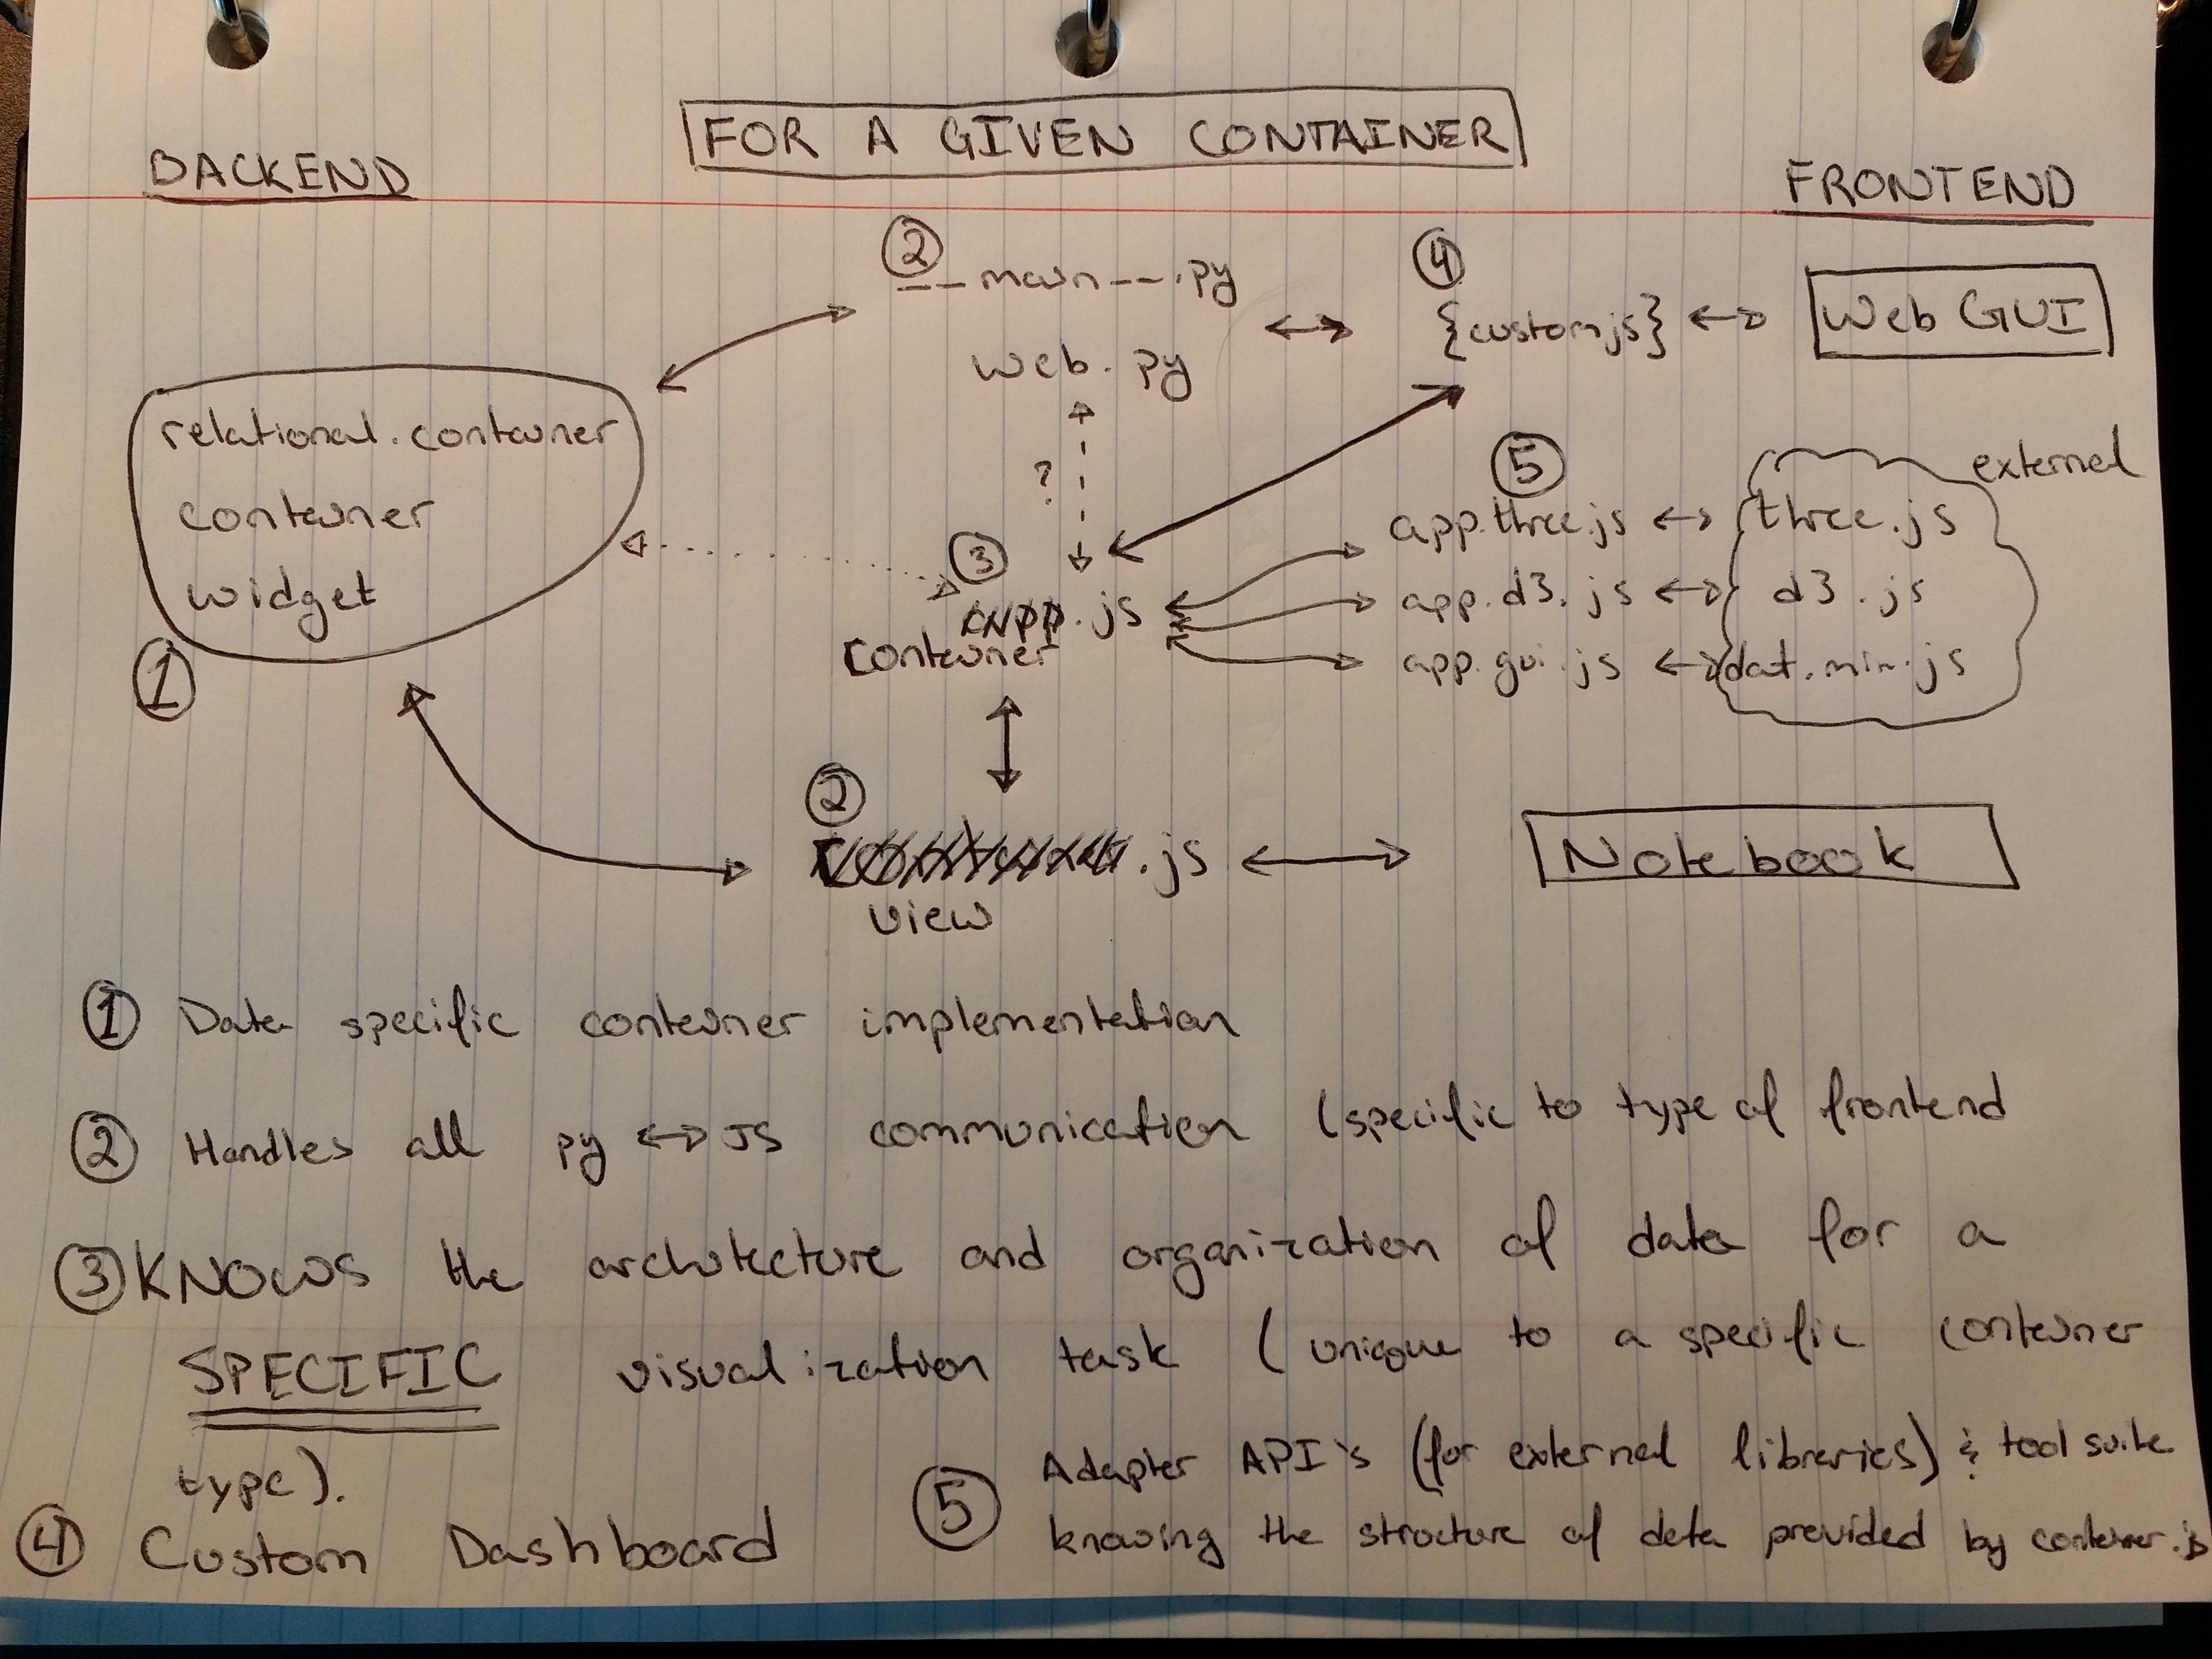 FOR A GIVEN CONTAINER
BACKEND
FRONTEND
②
__main__.py
④
{customjs}
Web GUI
web.py
relational.container
container
widget
①
?
⑤
external
app.three.js
three.js
③
app.js
container
app.d3.js
d3.js
app.gui.js
dat.min.js
②
.js
view
Notebook
① Data specific container implementation
② Handles all py <-> JS communication (specific to type of frontend
③ KNOWS the architecture and organization of data for a
SPECIFIC visualization task (unique to a specific container
type).
④ Custom Dashboard
⑤ Adapter API's (for external libraries) & tool suite
knowing the structure of data provided by container.js